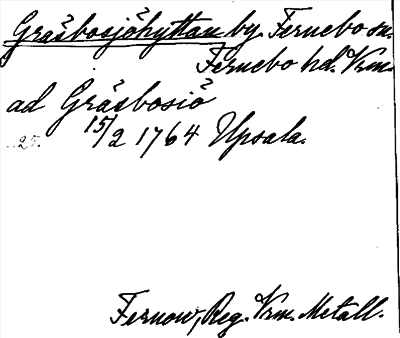 Gräsbosjöhyttan by. Fernebo sn.
Fernebo hd. Vrm.
ad Gräsbosiö
..25. 15/2 1764 Upsala.
Fernow, Reg. Vrm. Metall.